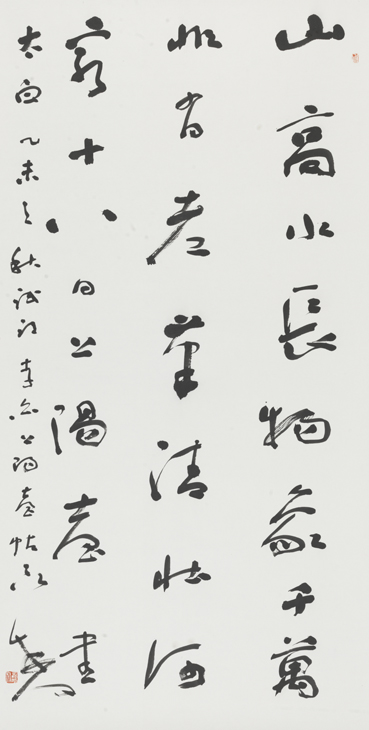 山高水長物象千萬
非有老筆清壯何
窮十八日上陽臺書
太白 乙未之秋試李白上陽臺帖